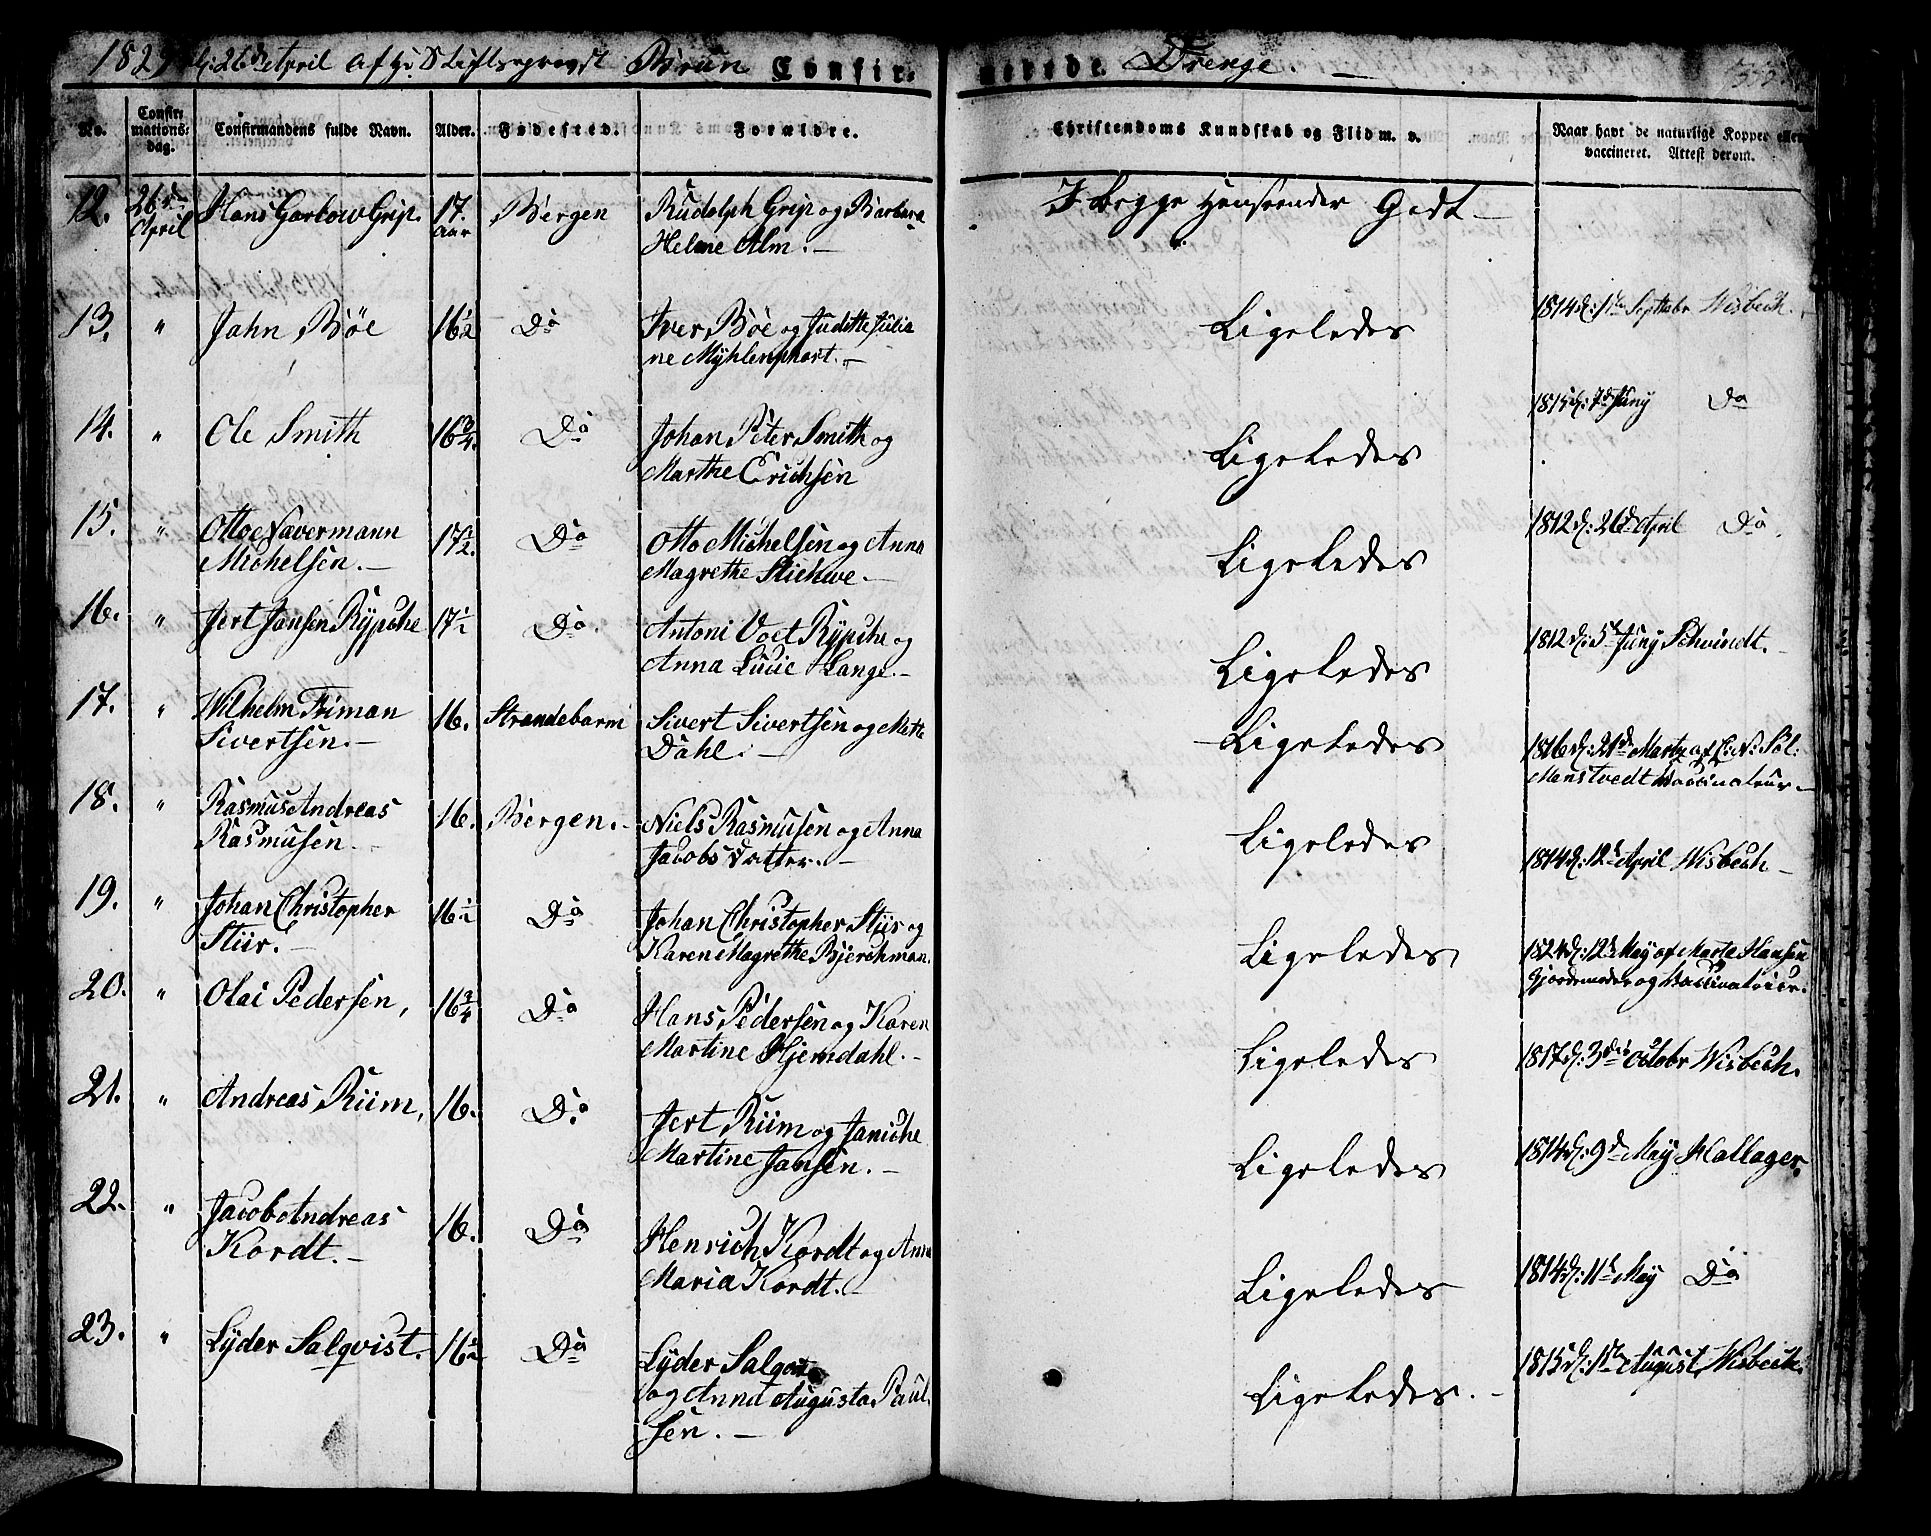 d: 26de April af Hr. Stiftsprovst Brun Confirmerede. Drenge.
No. Confirmationsdag. Confirmandens fulde Navn. Alder. Fødested. Forældre. Christendoms Kundskab og Flid m. v. Naar havt de naturlige Kopper eller vaccineret. Attest derom.
12. 26de April Hans Garbow Grip. 17. aar Bergen Rudolph Grip og Barbara
Helene Alm. I begge Henseender Godt
13. " Jahn Böe 16½ Do Iver Böe og Juditte Julia
ne Mÿhlenphort. Ligeledes 1814 d: 1te Septtbr Wisbech.
14. " Ole Smith 16¾. Do Johan Peter Smith og
Marthe Erichsen Ligeledes 1815 d: 7de Juny Do
15. " Otto Navermann
Michelsen. 17½. Do Otto Michelsen og Anna
Magrethe Stichwe. Ligeledes 1812 d: 26de April Do.
16. " Jert Jansen Rÿpche 17½ Do. Antoni Voet Rÿpche og
Anna Lucie Lange. Ligeledes 1812 d: 5te Juny Schvindt.
17. " Wilhelm Friman
Sivertsen. 16. Strandebarm Sivert Sivertsen og Mette
Dahl. Ligeledes 1816 d: 21de Marty af C: N: Söl:
Manstvedt Vaccinateur
18. " Rasmus Andreas
Rasmusen 16. Bergen. Niels Rasmusen og Anna
Jacobs datter. Ligeledes 1814 d: 12te April Wisbech
19. " Johan Christopher
Stiir. 16½ Do Johan Christopher Stiir og
Karen Magrethe Bjerchman. Ligeledes 1824 d: 12te May af Marta Hansen
Gjordemoder og Vaccinatrice.
20. " Olai Pedersen, 16¾ Do Hans Pedersen og Karen
Martine Hjemdahl. Ligeledes 1817 d: 3die Octobr Wisbech.
21. " Andreas Riim, 16. Do Jert Riim og Janiche
Martine Jansen. Ligeledes 1814 d: 9de May Hallager.
22. " Jacob Andreas
Kordt. 16. Do Henrich Kordt og Anna
Maria Kordt. Ligeledes 1814 d: 11te May Do
23. " Lÿder Salqvist. 16½ Do Lÿder Salqvist
og Anna Augusta Paul
sen. Ligeledes. 1815 d: 1te August Wisbech.